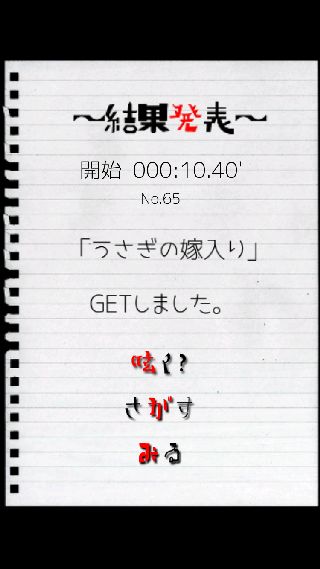 ～結果発表～
開始 000:10.40'
No.65
「うさぎの嫁入り」
GETしました。
呟く?
さがす
みる